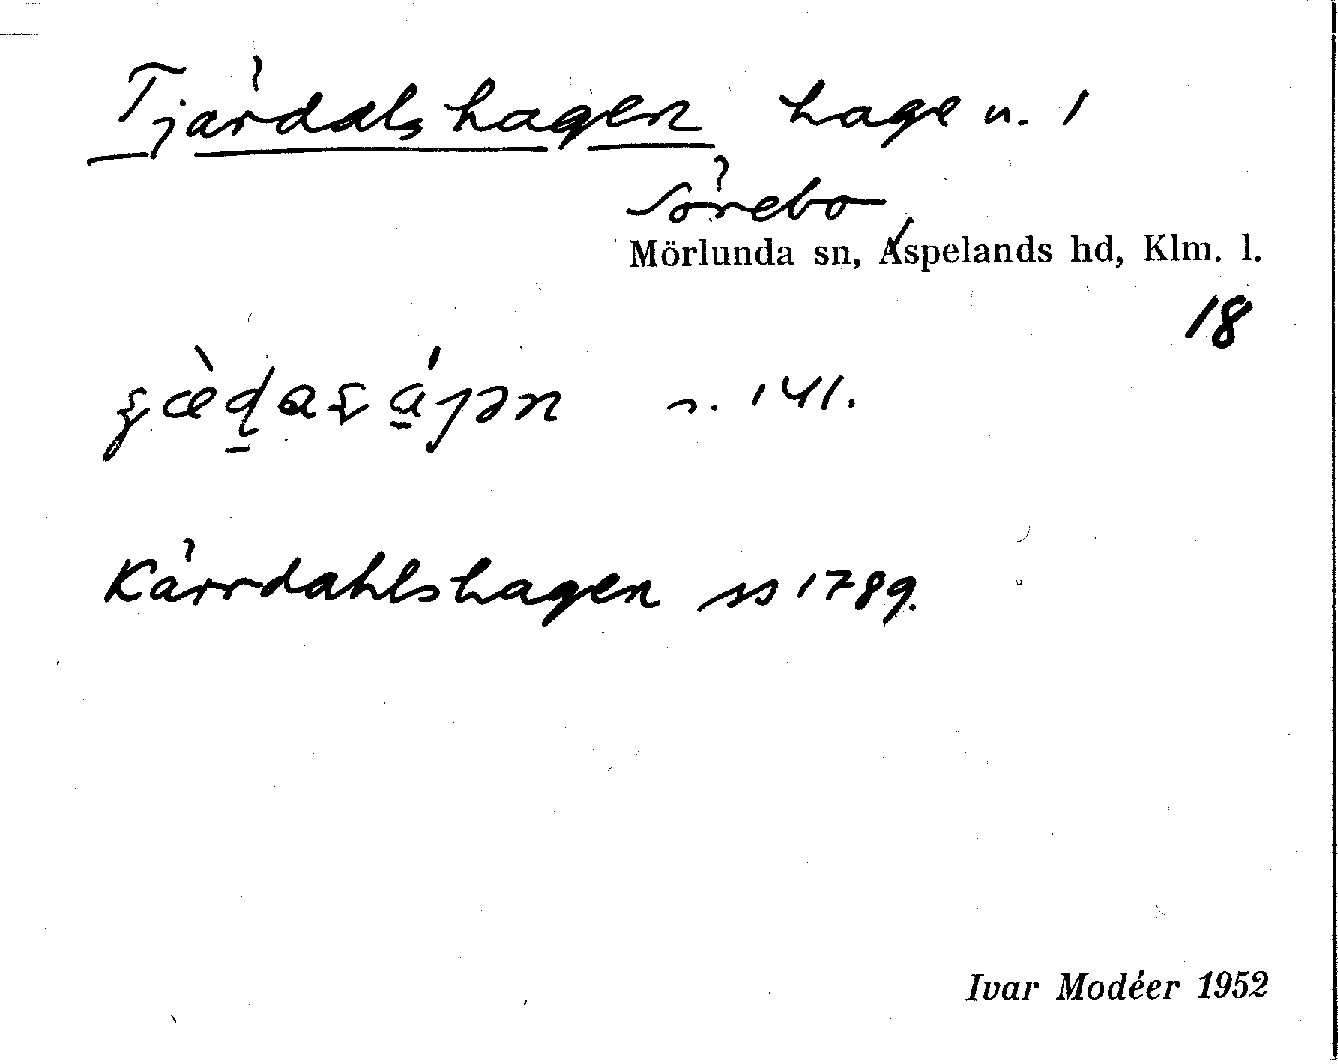 Tjärdalshagen hage u. 1
Sörebo
Mörlunda sn, Aspelands hd, Klm. l.
18
141.
Kärrdahlshagen ss 1789.
Ivar Modéer 1952